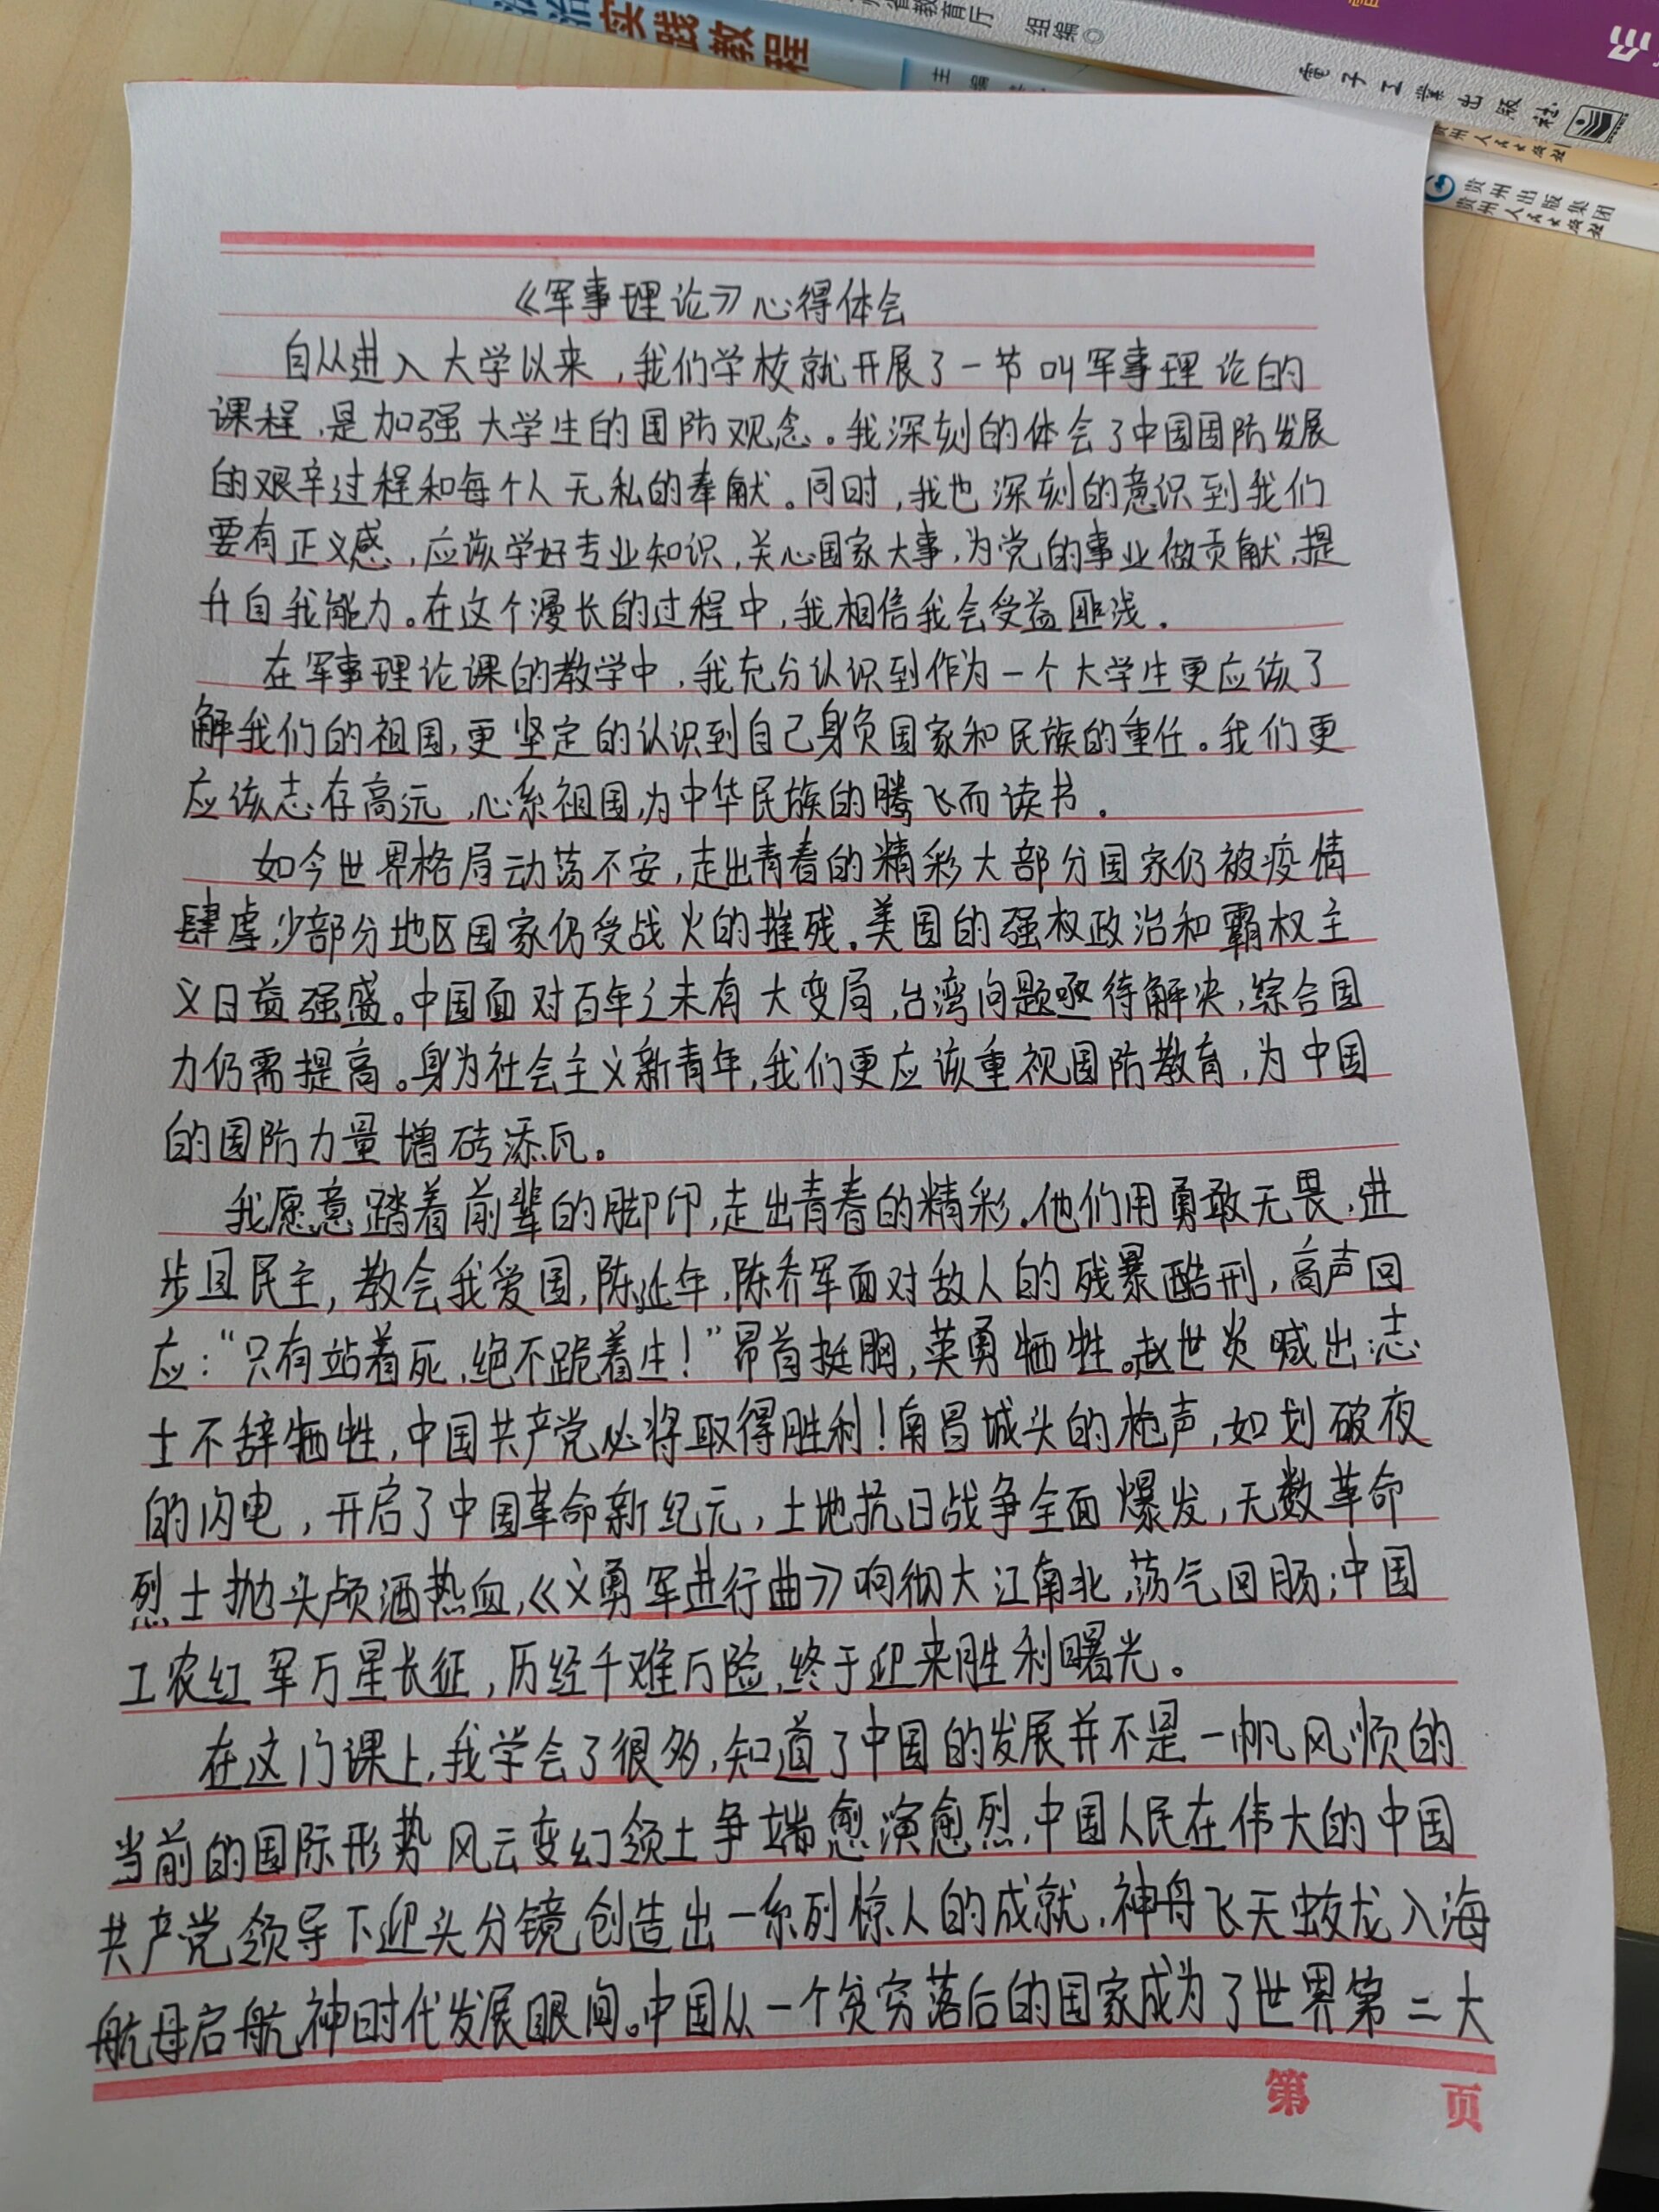 实践教程
主编
省教育厅 组编
电子工业出版社
贵州人民出版社
贵州出版集团
贵州人民出版社
《军事理论》心得体会
自从进入大学以来,我们学校就开展了一节叫军事理论的
课程,是加强大学生的国防观念。我深刻的体会了中国国防发展
的艰辛过程和每个人无私的奉献。同时,我也深刻的意识到我们
要有正义感,应该学好专业知识,关心国家大事,为党的事业做贡献,提
升自我能力。在这个漫长的过程中,我相信我会受益匪浅。
在军事理论课的教学中,我充分认识到作为一个大学生更应该了
解我们的祖国,更坚定的认识到自己身负国家和民族的重任。我们更
应该志存高远,心系祖国,为中华民族的腾飞而读书。
如今世界格局动荡不安,走出青春的精彩大部分国家仍被疫情
肆虐,少部分地区国家仍受战火的摧残。美国的强权政治和霸权主
义日益强盛。中国面对百年之未有大变局,台湾问题亟待解决,综合国
力仍需提高。身为社会主义新青年,我们更应该重视国防教育,为中国
的国防力量增砖添瓦。
我愿意踏着前辈的脚印,走出青春的精彩。他们用勇敢无畏,进
步且民主,教会我爱国,陈延年,陈乔军面对敌人的残暴酷刑,高声回
应:“只有站着死,绝不跪着生!”昂首挺胸,英勇牺牲。赵世炎喊出志
士不辞牺牲,中国共产党必将取得胜利!南昌城头的枪声,如划破夜
的闪电,开启了中国革命新纪元,土地抗日战争全面爆发,无数革命
烈士抛头颅洒热血,《义勇军进行曲》响彻大江南北,荡气回肠;中国
工农红军万里长征,历经千难万险,终于迎来胜利曙光。
在这门课上,我学会了很多,知道了中国的发展并不是一帆风顺的
当前的国际形势风云变幻领土争端愈演愈烈,中国人民在伟大的中国
共产党领导下迎头分镜创造出一系列惊人的成就,神舟飞天蛟龙入海
航母启航,神时代发展眼间。中国从一个贫穷落后的国家成为了世界第二大
第 页